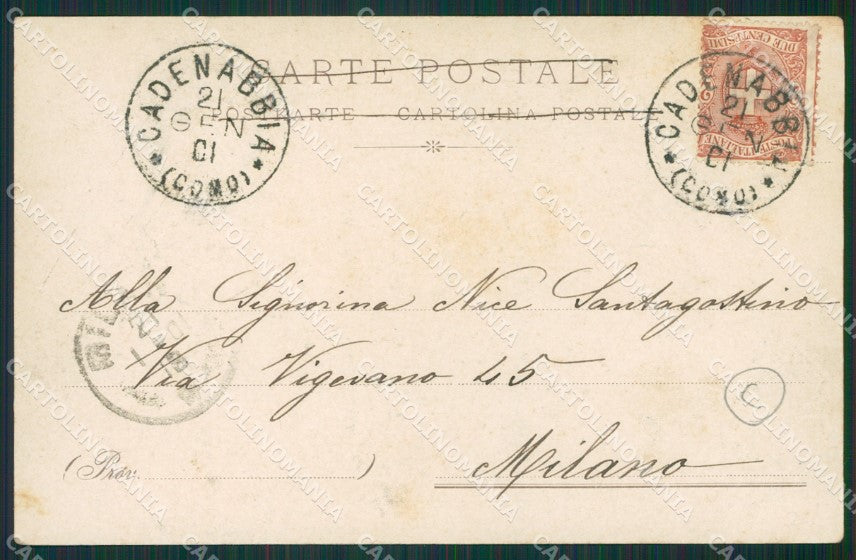 CARTE POSTALE
POSTKARTE — CARTOLINA POSTALE
CADENABBIA
21
GEN
01
(COMO)
DUE CENTESIMI
POSTE ITALIANE
CADENABBIA
21
GEN
01
(COMO)
Alla Signorina Nice Santagostino
Via Vigevano 45
(Prov. )
Milano
C
CARTOLINOMANIA